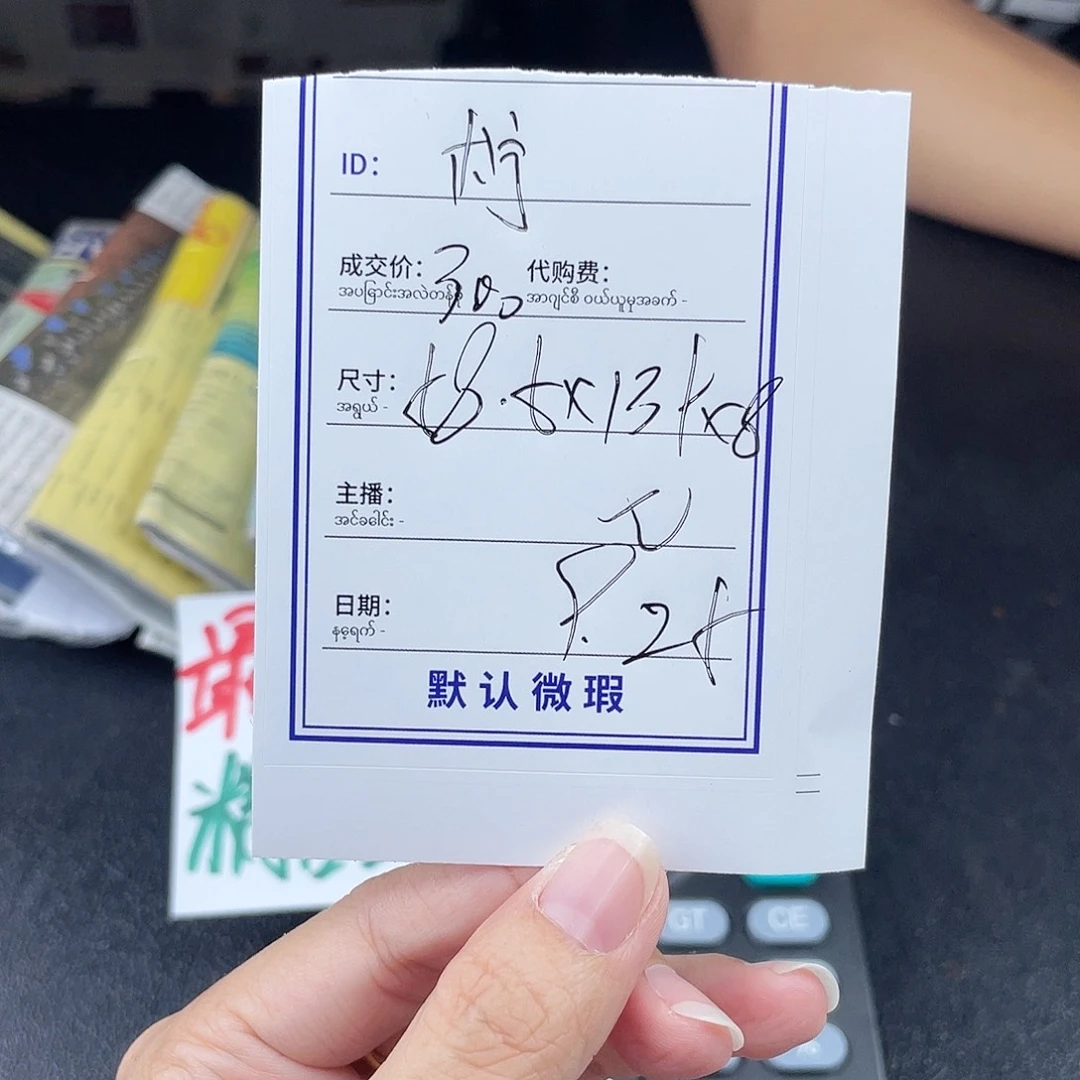 ID:
成交价: 300 代购费:
အပြောင်းအလဲတန်ဖိုး အာဂျင်စီ ဝယ်ယူမှုအခက် -
尺寸: 58.5x135x8
အရွယ် -
主播:
အင်ခေါင်း -
日期: 8.25
နေ့ရက် -
默认微瑕
最
精
GT CE